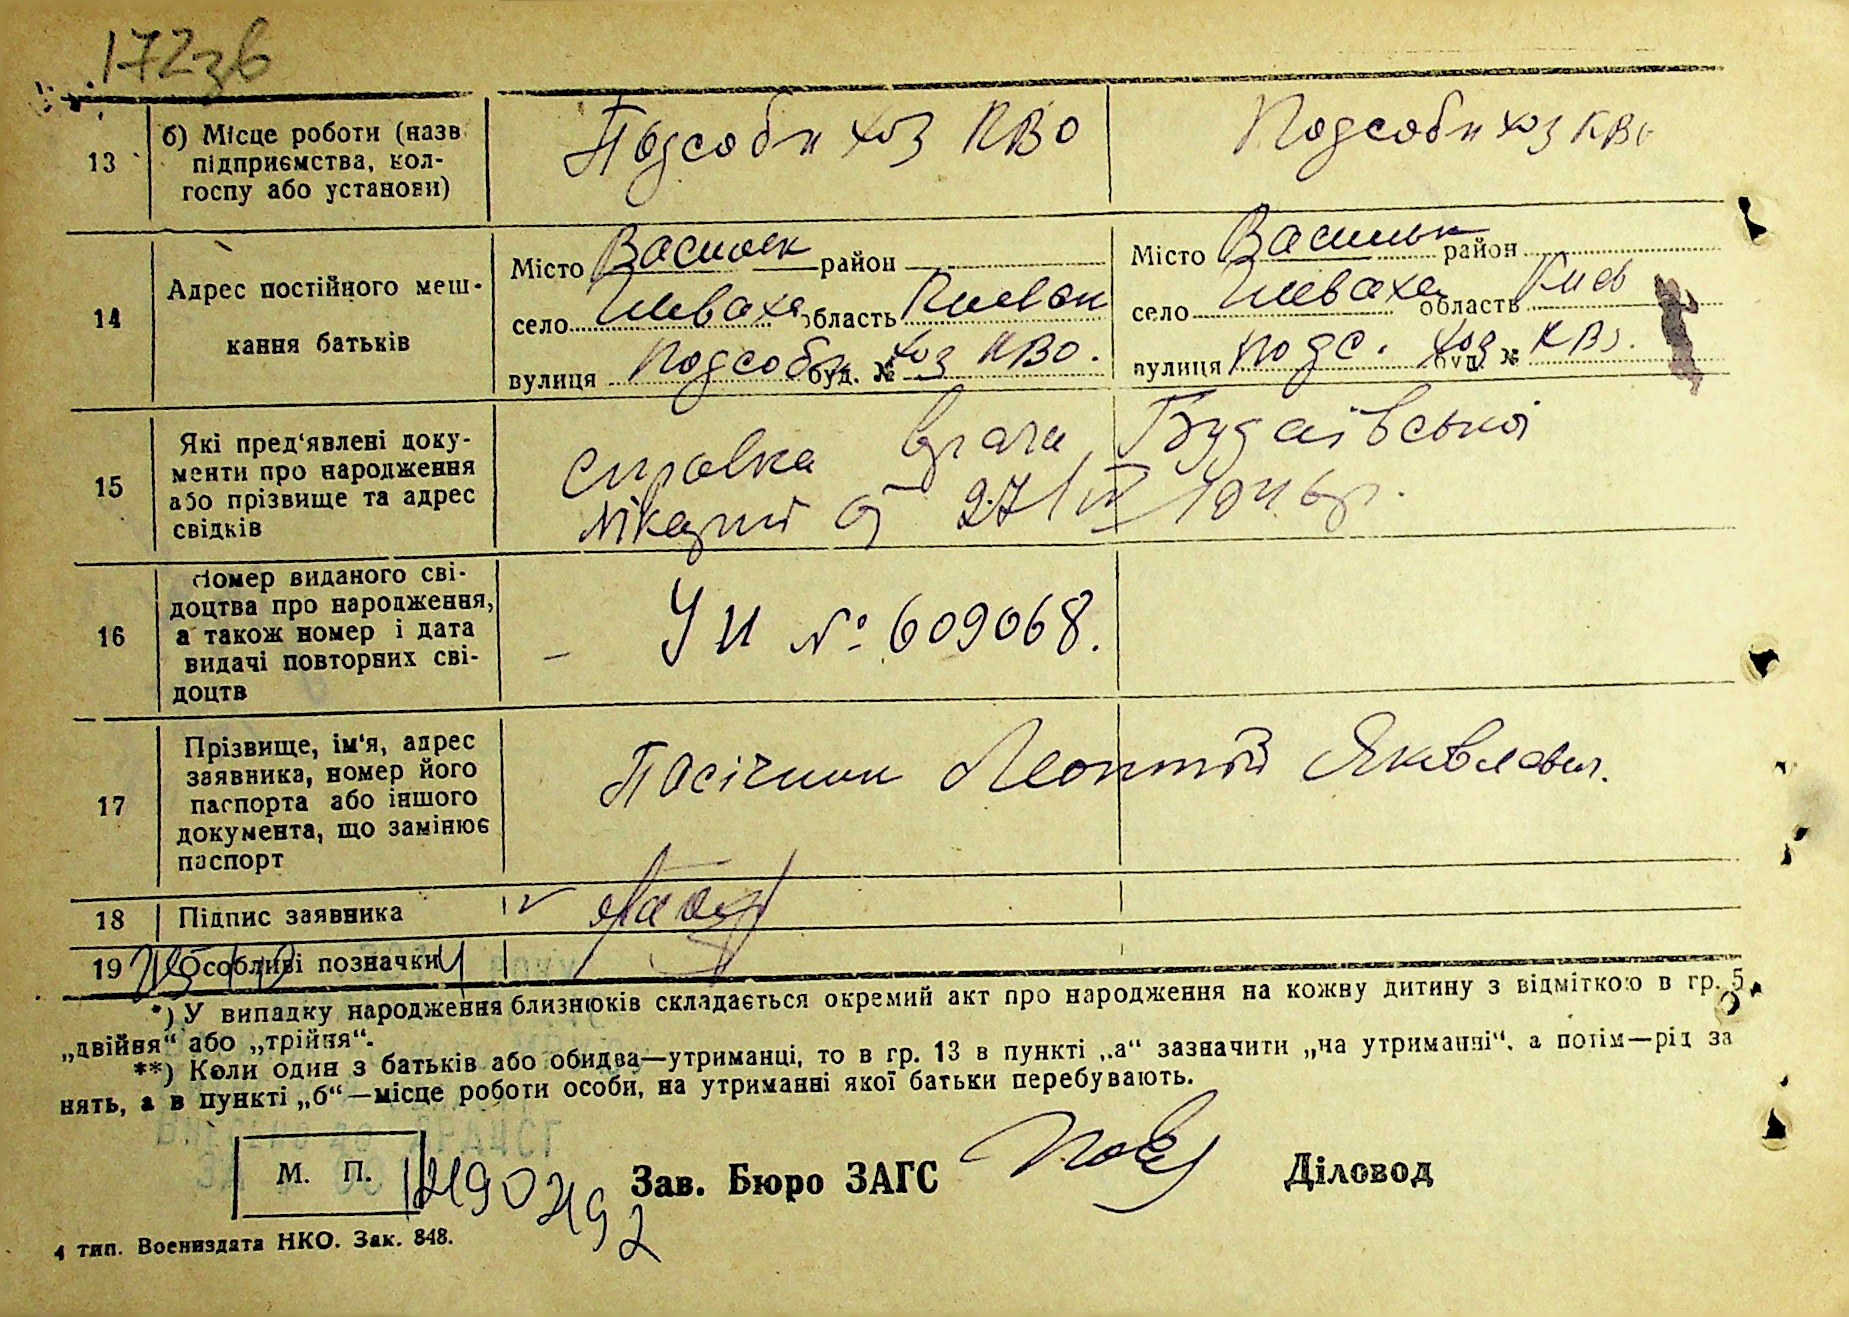 172зв
13
б) Місце роботи (назв
підприємства, кол-
госпу або установи)
Подсобн хоз КВО
Подсобн хоз КВО
14
Адрес постійного меш-
кання батьків
Місто Васильк район
село область Киевск
вулиця Подсобн буд. № хоз КВО.
Місто Васильк район
село область Киев
вулиця подс. буд № хоз КВО.
15
Які пред'явлені доку-
менти про народження
або прізвище та адрес
свідків
справка врача Будаївської
лікарні від 27/ 1946р.
16
Номер виданого сві-
доцтва про народження,
а також номер і дата
видачі повторних сві-
доцтв
– УИ № 609068.
17
Прізвище, ім'я, адрес
заявника, номер його
паспорта або іншого
документа, що замінює
паспорт
Пасічник Леонтій Яковлевич.
18
Підпис заявника
19
Особливі позначки
*) У випадку народження близнюків складається окремий акт про народження на кожну дитину з відміткою в гр. 5,
„двійня“ або „трійня“.
**) Коли один з батьків або обидва—утриманці, то в гр. 13 в пункті „а“ зазначити „на утриманні“, а потім—рід за
нять, а в пункті „б“—місце роботи особи, на утриманні якої батьки перебувають.
М. П.
Зав. Бюро ЗАГС
Діловод
4 тип. Воениздата НКО. Зак. 848.